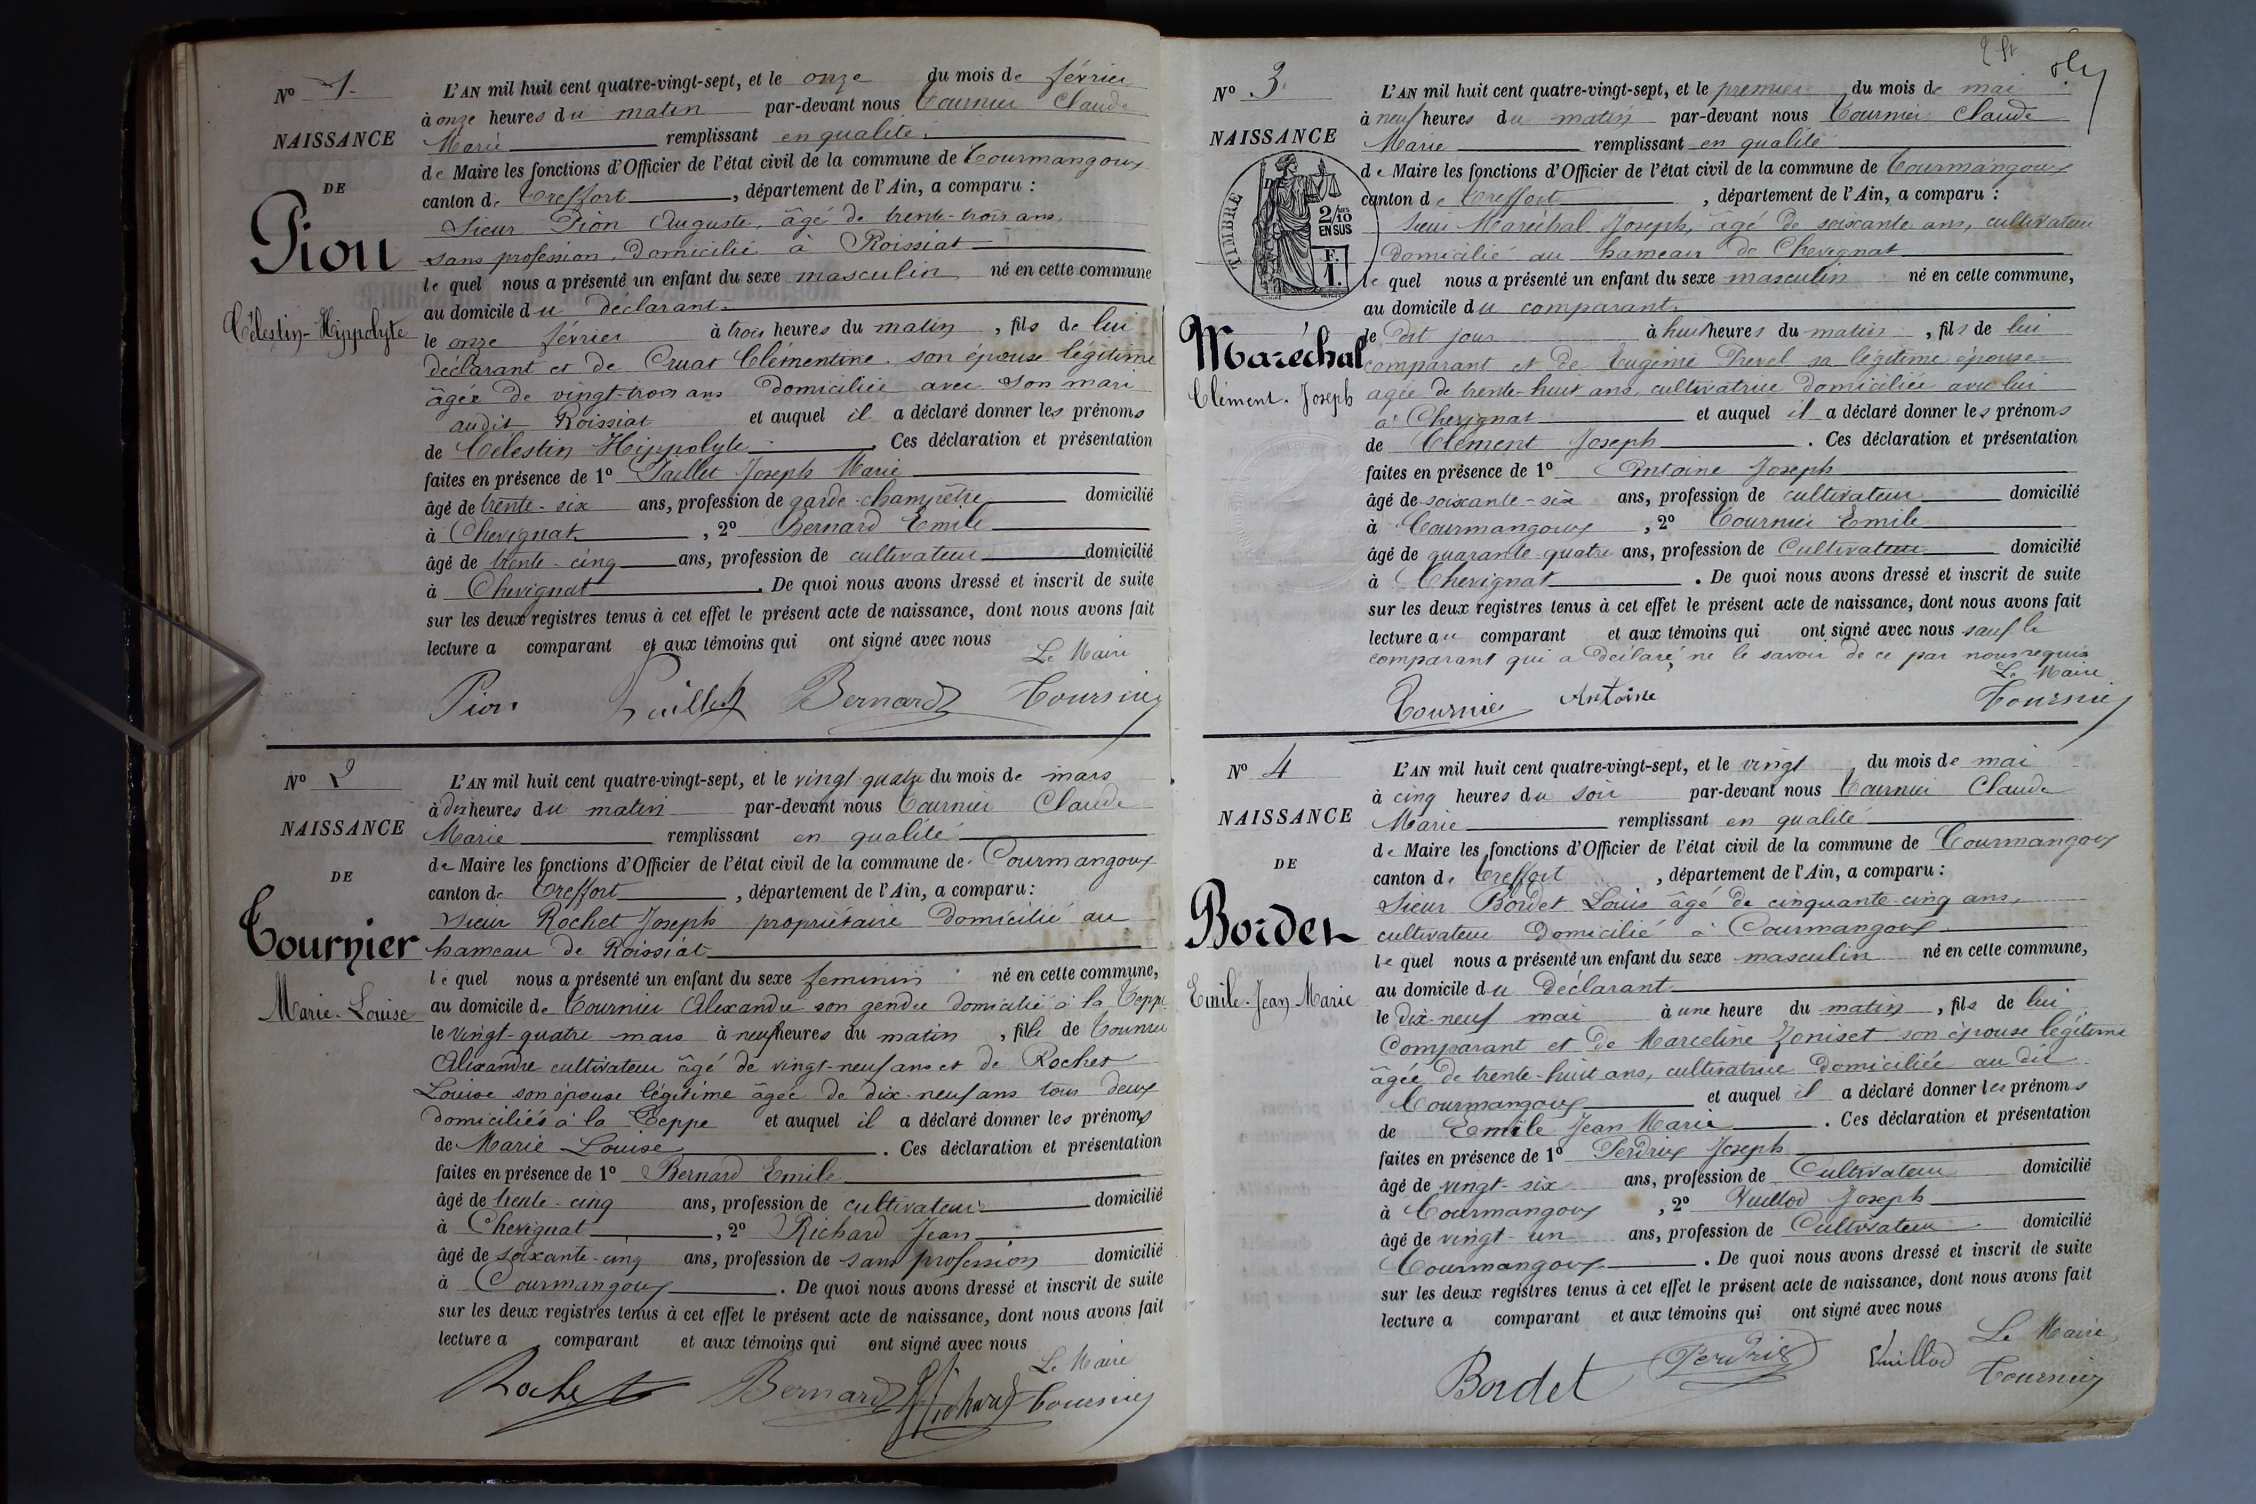 N° 1
NAISSANCE
DE
Pion
Célestin-Hippolyte
L'AN mil huit cent quatre-vingt-sept, et le onze du mois de février
à onze heures du matin par-devant nous Tournier Claude
Marie remplissant en qualité
de Maire les fonctions d'Officier de l'état civil de la commune de Courmangoux
canton de Treffort, département de l'Ain, a comparu :
Sieur Pion Auguste, âgé de trente-trois ans,
sans profession, domicilié à Roissiat
lequel nous a présenté un enfant du sexe masculin né en cette commune
au domicile du déclarant
le onze février à trois heures du matin, fils de lui
déclarant et de Cruat Clémentine son épouse légitime
âgée de vingt-trois ans domiciliée avec son mari
audit Roissiat et auquel il a déclaré donner les prénoms
de Célestin Hippolyte. Ces déclaration et présentation
faites en présence de 1° Paillet Joseph Marie
âgé de trente-six ans, profession de garde-champêtre domicilié
à Chevignat, 2° Bernard Emile
âgé de trente-cinq ans, profession de cultivateur domicilié
à Chevignat. De quoi nous avons dressé et inscrit de suite
sur les deux registres tenus à cet effet le présent acte de naissance, dont nous avons fait
lecture a comparant et aux témoins qui ont signé avec nous
Le Maire
Pion Paillet Bernard Tournier
N° 2
NAISSANCE
DE
Tournier
Marie-Louise
L'AN mil huit cent quatre-vingt-sept, et le vingt quatre du mois de mars
à dix heures du matin par-devant nous Tournier Claude
Marie remplissant en qualité
de Maire les fonctions d'Officier de l'état civil de la commune de Courmangoux
canton de Treffort, département de l'Ain, a comparu :
Sieur Rochet Joseph propriétaire domicilié au
hameau de Roissiat
lequel nous a présenté un enfant du sexe feminin né en cette commune,
au domicile de Tournier Alexandre son gendre domicilié à la Teppe
le vingt-quatre mars à neuf heures du matin, fille de Tournier
Alexandre cultivateur âgé de vingt-neuf ans et de Rochet
Louise son épouse légitime âgée de dix-neuf ans tous deux
domiciliés à la Teppe et auquel il a déclaré donner les prénoms
de Marie Louise. Ces déclaration et présentation
faites en présence de 1° Bernard Emile
âgé de trente-cinq ans, profession de cultivateur domicilié
à Chevignat, 2° Richard Jean
âgé de soixante-cinq ans, profession de sans profession domicilié
à Courmangoux. De quoi nous avons dressé et inscrit de suite
sur les deux registres tenus à cet effet le présent acte de naissance, dont nous avons fait
lecture a comparant et aux témoins qui ont signé avec nous
Le Maire
Rochet Bernard Richard Tournier
N° 3
NAISSANCE
TIMBRE
2/10 EN SUS
F. 1.
Maréchal
Clément-Joseph
L'AN mil huit cent quatre-vingt-sept, et le premier du mois de mai
à neuf heures du matin par-devant nous Tournier Claude
Marie remplissant en qualité
de Maire les fonctions d'Officier de l'état civil de la commune de Courmangoux
canton de Treffort, département de l'Ain, a comparu :
Sieur Maréchal Joseph, âgé de soixante ans, cultivateur
domicilié au hameau de Chevignat
lequel nous a présenté un enfant du sexe masculin né en cette commune,
au domicile du comparant
le dit jour à huit heures du matin, fils de lui
comparant et de Eugénie Prevel sa légitime épouse
agée de trente-huit ans, cultivatrice domiciliée avec lui
à Chevignat et auquel il a déclaré donner les prénoms
de Clément Joseph. Ces déclaration et présentation
faites en présence de 1° Antoine Joseph
âgé de soixante-six ans, profession de cultivateur domicilié
à Courmangoux, 2° Tournier Emile
âgé de quarante-quatre ans, profession de Cultivateur domicilié
à Chevignat. De quoi nous avons dressé et inscrit de suite
sur les deux registres tenus à cet effet le présent acte de naissance, dont nous avons fait
lecture au comparant et aux témoins qui ont signé avec nous sauf le
comparant qui a déclaré ne le savoir de ce par nous requis
Le Maire
Tournier Antoine Tournier
N° 4
NAISSANCE
DE
Bordet
Emile-Jean Marie
L'AN mil huit cent quatre-vingt-sept, et le vingt du mois de mai
à cinq heures du soir par-devant nous Tournier Claude
Marie remplissant en qualité
de Maire les fonctions d'Officier de l'état civil de la commune de Courmangoux
canton de Treffort, département de l'Ain, a comparu :
Sieur Bordet Louis âgé de cinquante-cinq ans,
cultivateur domicilié à Courmangoux
lequel nous a présenté un enfant du sexe masculin né en cette commune,
au domicile du déclarant
le dix-neuf mai à une heure du matin, fils de lui
Comparant et de Marceline Joniset son épouse légitime
âgée de trente-huit ans, cultivatrice domiciliée au dit
Courmangoux et auquel il a déclaré donner les prénoms
de Emile Jean Marie. Ces déclaration et présentation
faites en présence de 1° Perdrix Joseph
âgé de vingt-six ans, profession de Cultivateur domicilié
à Courmangoux, 2° Vuillod Joseph
âgé de vingt-un ans, profession de Cultivateur domicilié
à Courmangoux. De quoi nous avons dressé et inscrit de suite
sur les deux registres tenus à cet effet le présent acte de naissance, dont nous avons fait
lecture a comparant et aux témoins qui ont signé avec nous
Le Maire
Bordet Perdrix Vuillod Tournier